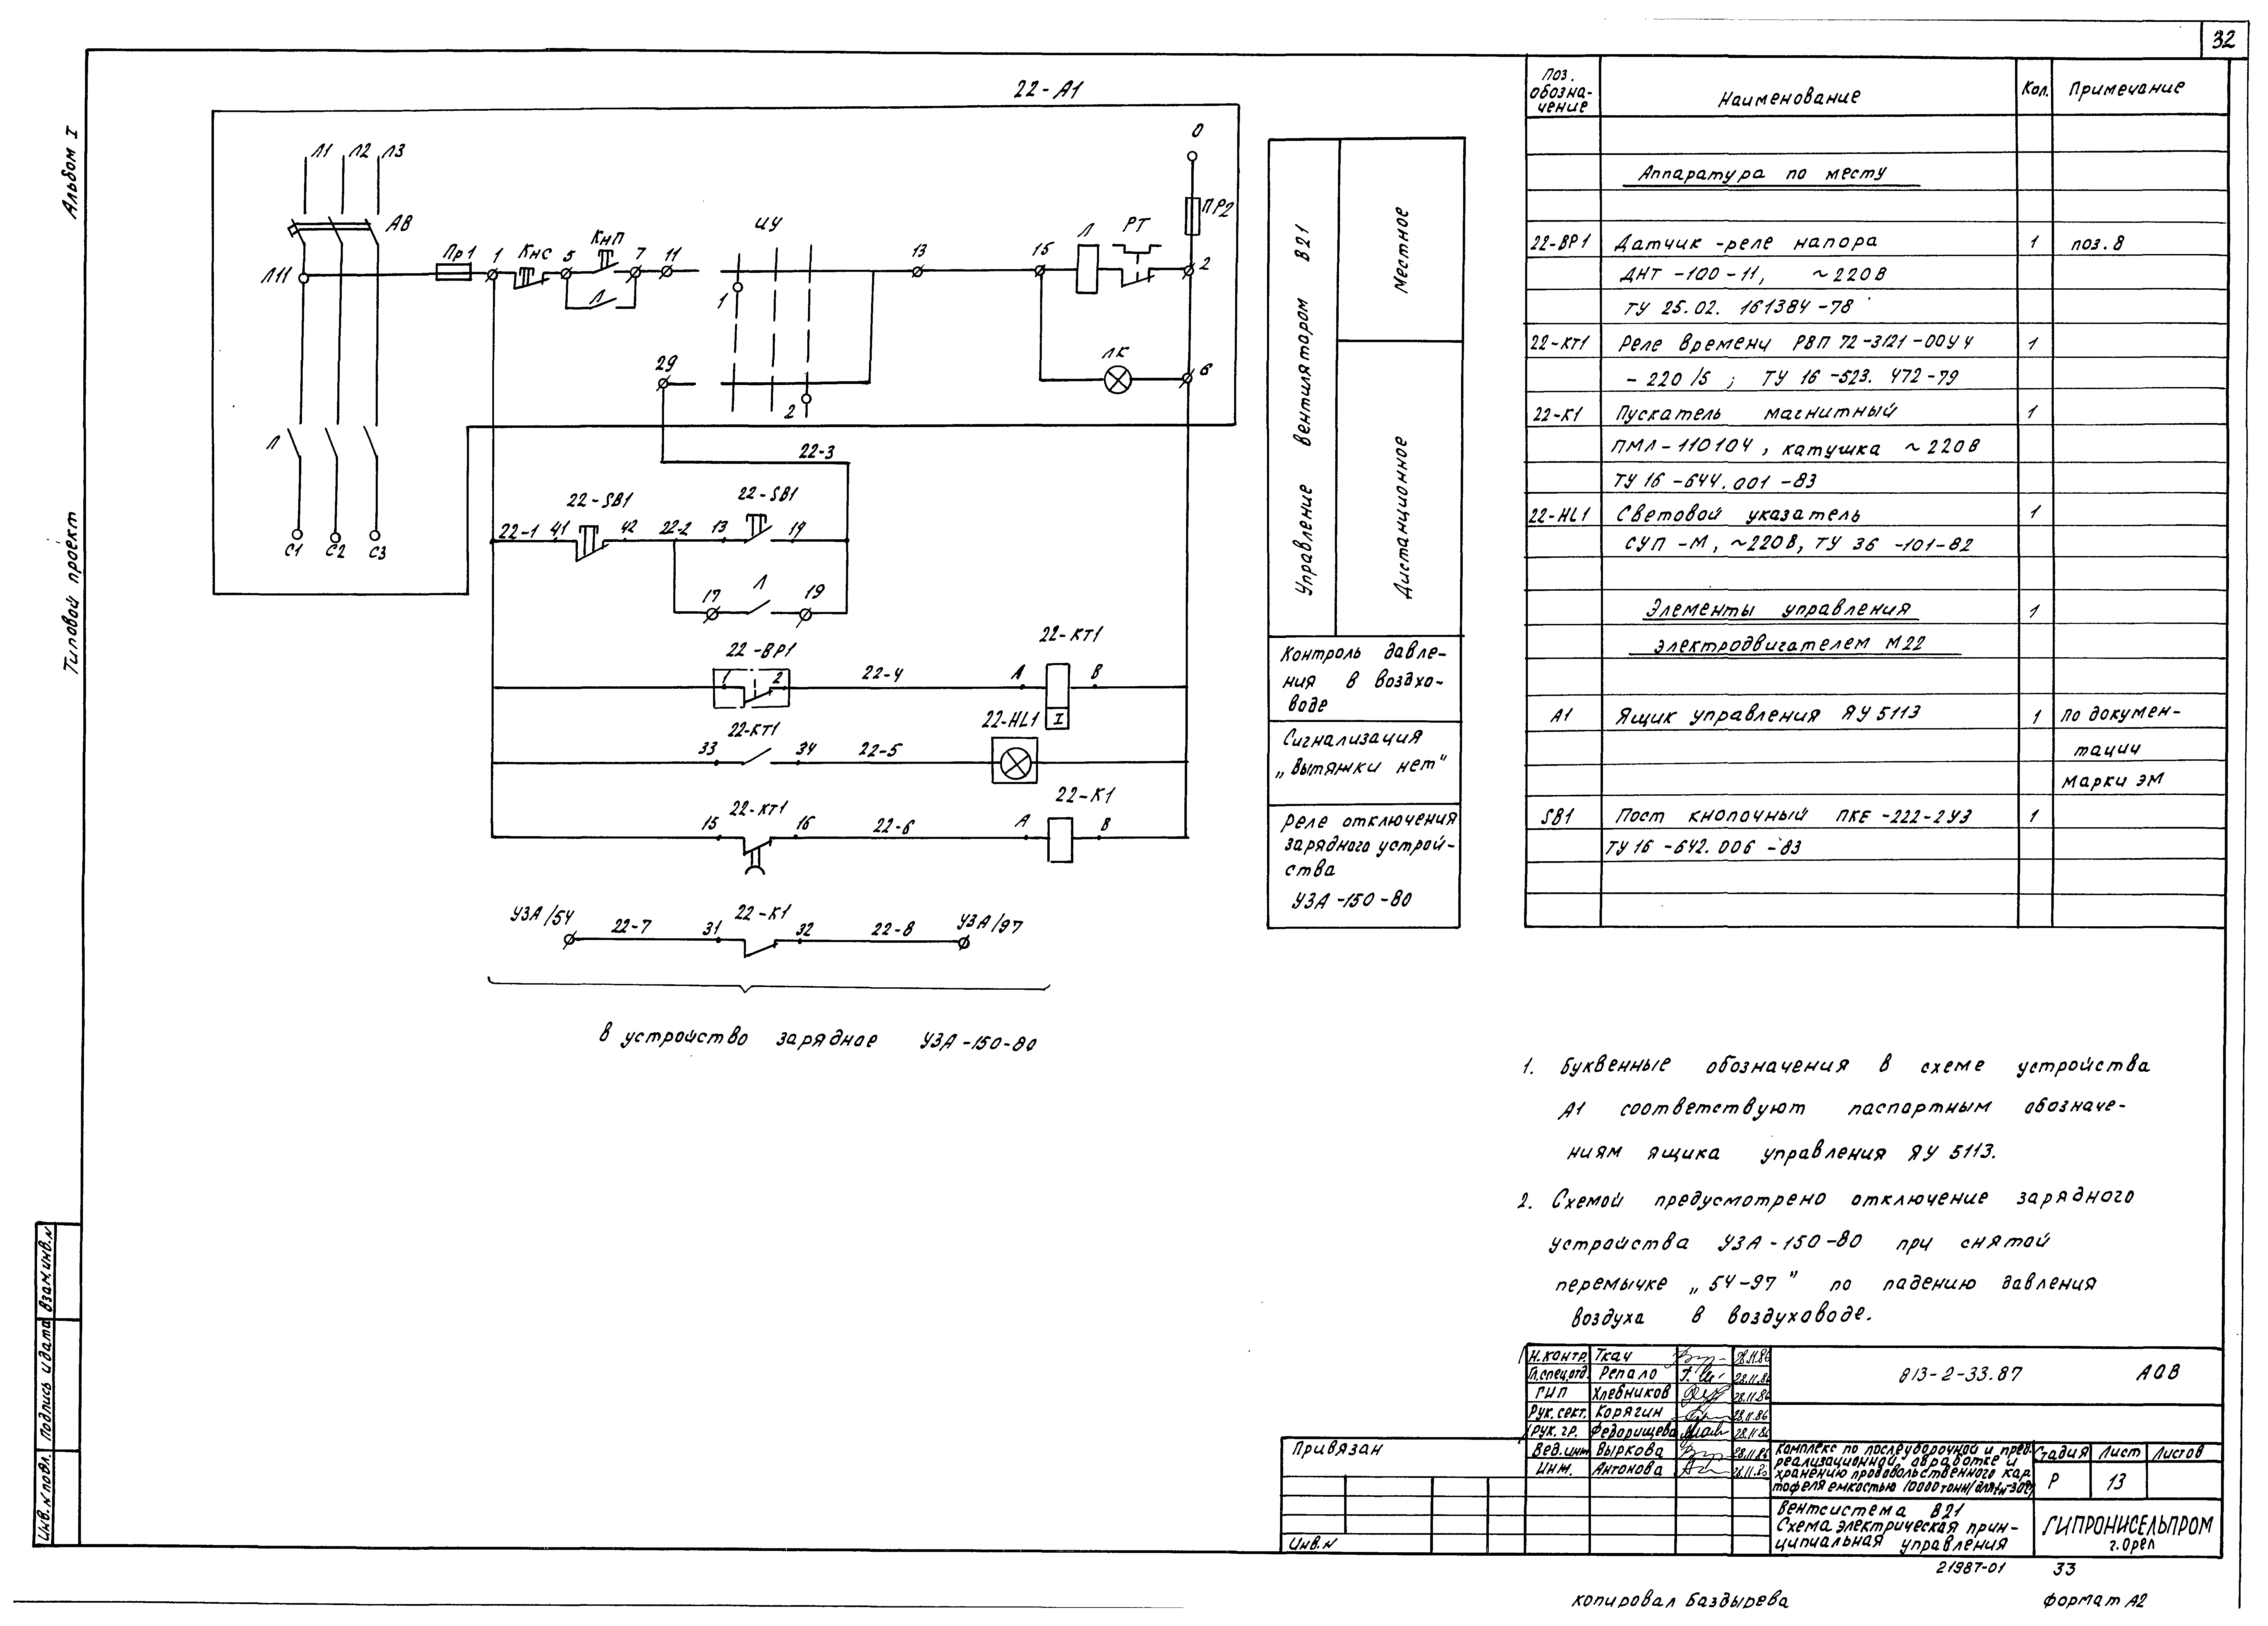 32
Альбом I
Типовой проект
Взам.инв.N
Подпись и дата
Инв.N подл.
22-А1
Л1 Л2 Л3
АВ
Л11
Пр1
1
КнС
5
КнП
7
11
Л
ЦУ
1
2
29
13
15
Л
РТ
ПР2
0
2
ЛК
6
Л
С1 С2 С3
22-3
22-SB1
22-SB1
22-1 41 42 22-2 13 14
17 Л 19
22-ВР1
22-КТ1
1 2 22-4 А В
I
22-КТ1
22-HL1
33 34 22-5
22-КТ1
22-К1
15 16 22-6 А В
УЗА/54 22-7 31 22-К1 32 22-8 УЗА/97
в устройство зарядное УЗА-150-80
Управление вентилятором В21
Местное
Дистанционное
Контроль давле-
ния в воздхо-
воде
Сигнализация
„Вытяжки нет"
Реле отключения
зарядного устрой-
ства
УЗА-150-80
Поз. обозна-чение
Наименование
Кол.
Примечание
Аппаратура по месту
22-ВР1 Датчик-реле напора 1 поз.8
ДНТ-100-11, ~220В
ТУ 25.02. 161384-78
22-КТ1 Реле времени РВП 72-3121-00У4 1
-220/5 ; ТУ 16-523. 472-79
22-К1 Пускатель магнитный 1
ПМЛ-110104, катушка ~220В
ТУ 16-644.001-83
22-HL1 Световой указатель 1
СУП-М, ~220В, ТУ 36-101-82
Элементы управления 1
электродвигателем М22
А1 Ящик управления ЯУ 5113 1 по докумен-
тации
марки ЭМ
SB1 Пост кнопочный ПКЕ-222-2У3 1
ТУ 16-642.006-83
1. Буквенные обозначения в схеме устройства
А1 соответствуют паспортным обозначе-
ниям ящика управления ЯУ 5113.
2. Схемой предусмотрено отключение зарядного
устройства УЗА-150-80 при снятой
перемычке „54-97" по падению давления
воздуха в воздуховоде.
Н.контр. Ткач 28.11.86
Гл.спец.отд. Репало 28.11.86
ГИП Хлебников 28.11.86
Рук.сект. Корягин 28.11.86
Рук.гр. Федорищева 28.11.86
Вед.инж Выркова 28.11.86
Инж. Антонова 28.11.86
Привязан
Инв.N
813-2-33.87 АОВ
Комплекс по послеуборочной и пред-
реализационной обработке и
хранению продовольственного кар
тофеля емкостью 10000 тонн
Стадия Лист Листов
Р 13
Вентсистема В21
Схема электрическая прин-
ципиальная управления
ГИПРОНИСЕЛЬПРОМ
г.Орел
21987-01 33
копировал Баздырева
формат А2